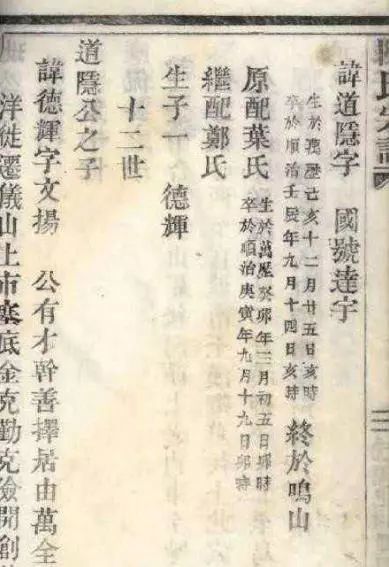 諱道隱字 國號達宇
生於萬歷己亥十二月廿五日亥時
卒於順治壬辰年九月十四日亥時
終於鳴山
原配葉氏
生於萬歷癸卯年三月初五日卯時
卒於順治庚寅年九月十九日卯時
繼配鄭氏
生子一 德輝
十二世
道隱公之子
諱德輝字文揚 公有才幹善擇居由萬全
洋徙遷儀山上市寨底金克勤克儉開創